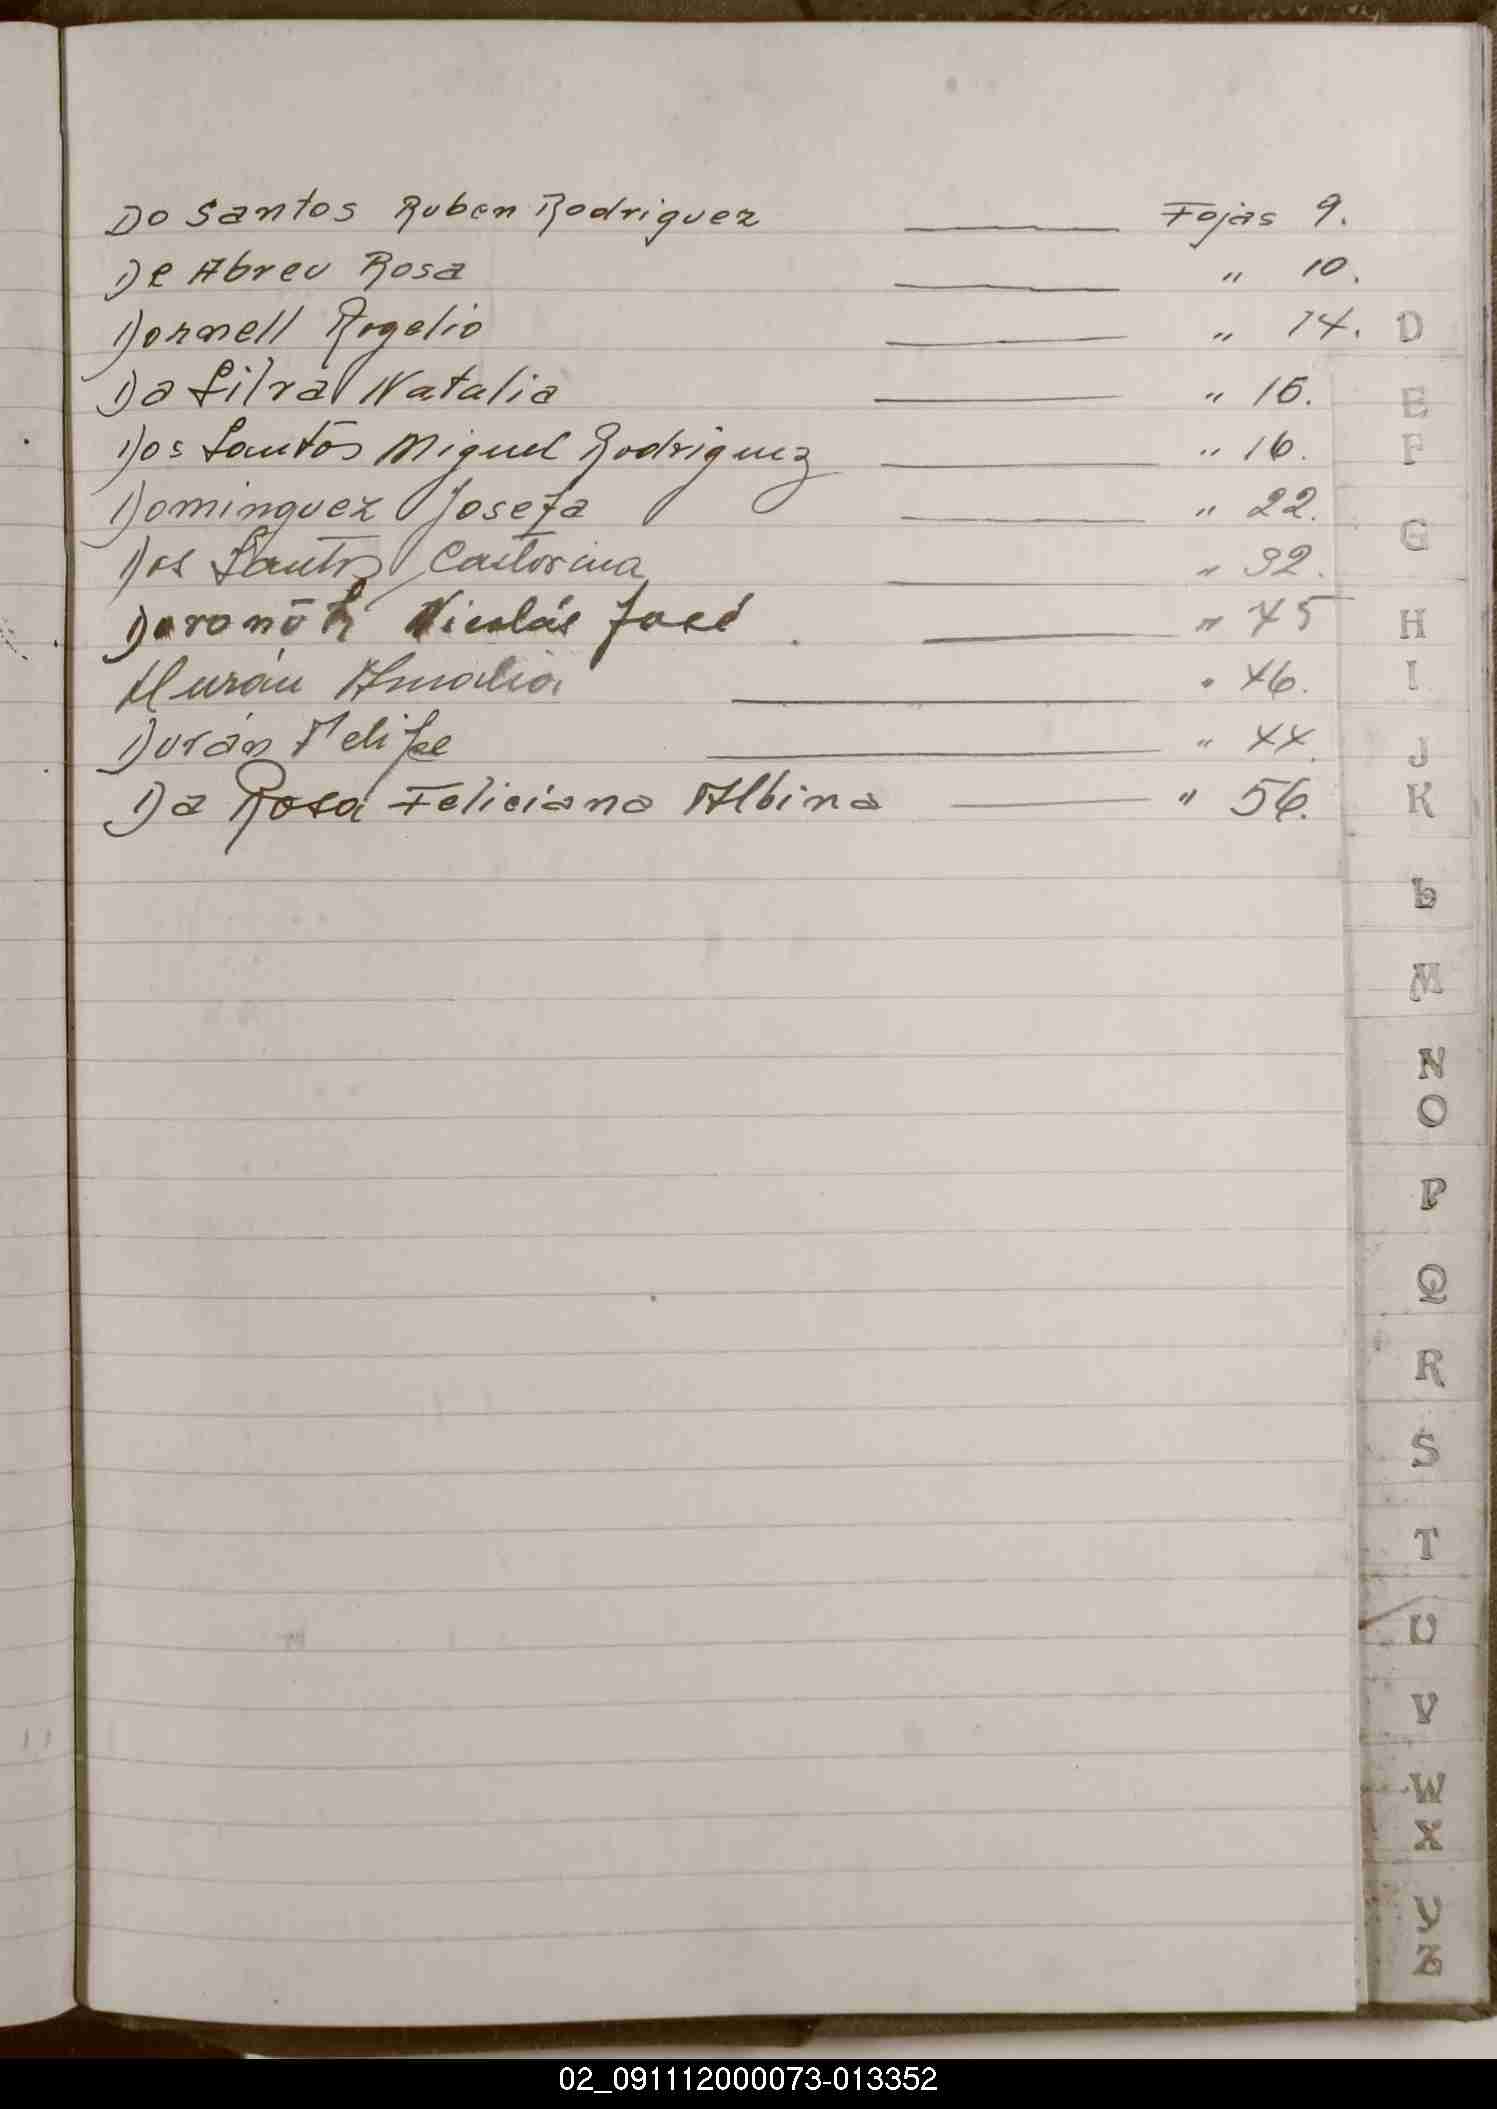 Do Santos Ruben Rodriguez Fojas 9.
De Abreu Rosa " 10.
Dornell Rogelio " 14.
Da Silva Natalia " 15.
Dos Santos Miguel Rodriguez " 16.
Dominguez Josefa " 22.
Dos Santos Castorina " 32.
Nicolás José " 45
Durán Amalia " 46.
Durán Felipe " 44.
Da Rosa Feliciana Albina " 56.
D
E
F
G
H
I
J
K
L
M
N
O
P
Q
R
S
T
U
V
W
X
Y
Z
02_091112000073-013352